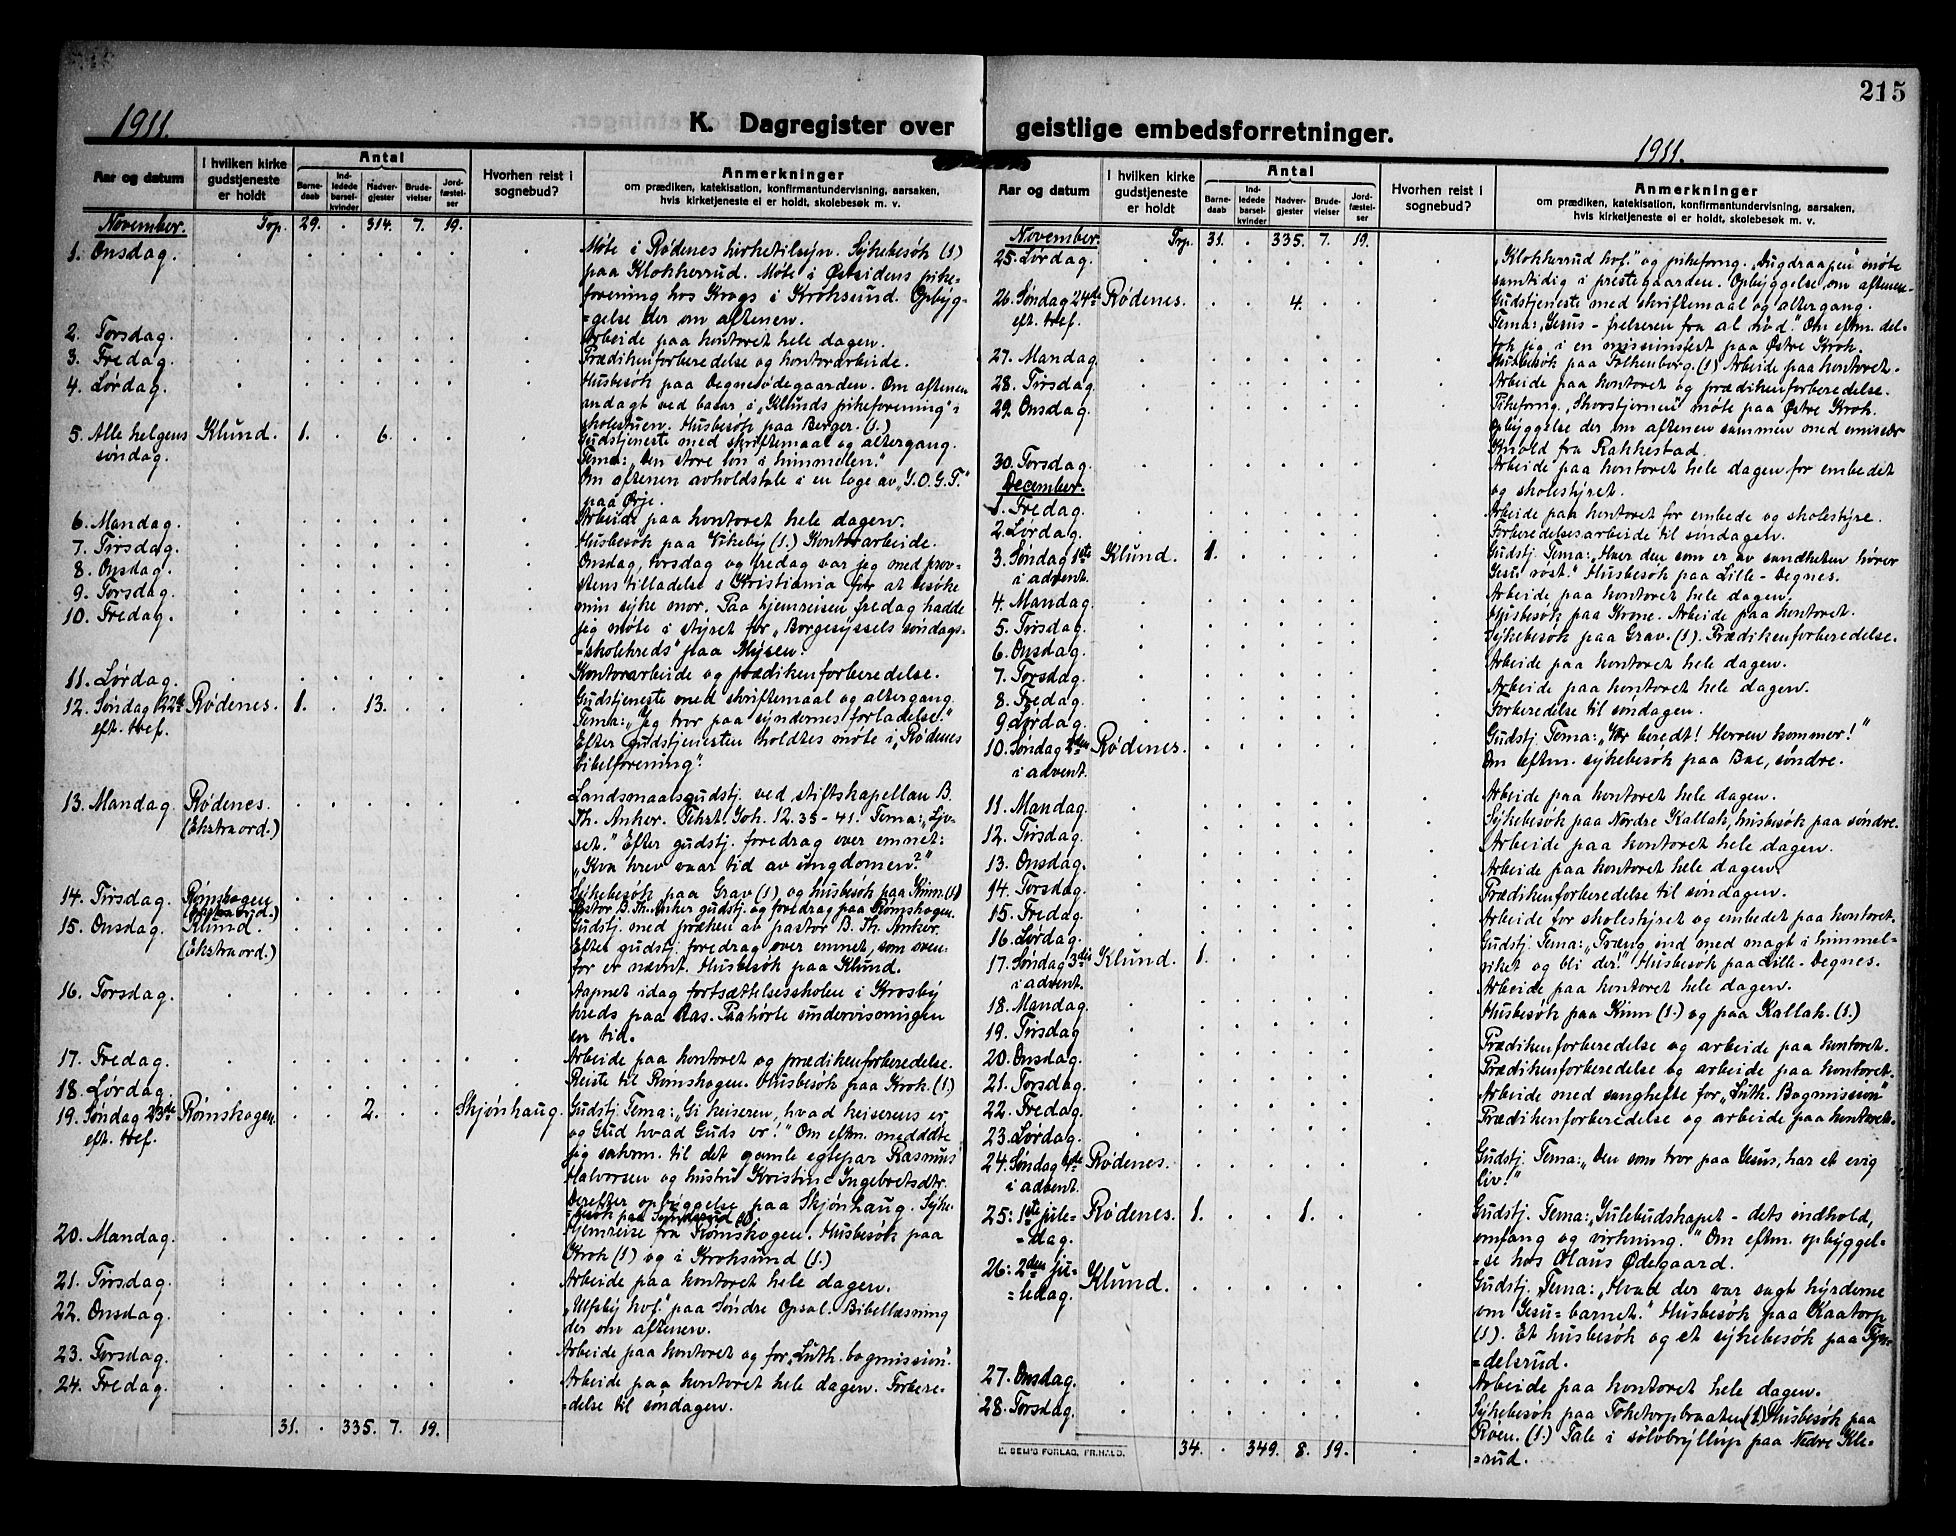 215
1911.
K. Dagregister over geistlige embedsforretninger.
1911.
Aar og datum
I hvilken kirke gudstjeneste er holdt
Antal
Barnedaab
Indledede barselkvinder
Nadvergjester
Brudevielser
Jordfæstelser
Hvorhen reist i sognebud?
Anmerkninger
om prædiken, katekisation, konfirmantundervisning, aarsaken,
hvis kirketjeneste ei er holdt, skolebesøk m. v.
November. Trp. 29. . 314. 7. 19.
1. Onsdag. Møte i Rødenes kirketilsyn. Sykebesøk (1)
paa Klokkerrud. Møte i Østsidens pike-
forening hos Krogs i Kroksund. Opbyg-
=gelse der om aftenen.
2. Torsdag. Arbeide paa kontoret hele dagen.
3. Fredag. Prædikenforberedelse og kontorarbeide.
4. Lørdag. Husbesøk paa Degnesødegaarden. Om aftenen
andagt ved basar i „Klunds pikeforening" i
skolestuen. Husbesøk paa Berger. (1.)
5. Alle helgens Klund. 1. . 6. . . Gudstjeneste med skriftemaal og altergang.
søndag. Tema: „Den store løn i himmelen."
Om aftenen avholdstale i en loge av „I.O.G.T."
paa Ørje.
6. Mandag. Arbeide paa kontoret hele dagen.
7. Tirsdag. Husbesøk paa Vikeby (1.) Kontorarbeide.
8. Onsdag. Onsdag, torsdag og fredag var jeg med prov-
9. Torsdag. stens tilladelse i Kristiania for at besøke
10. Fredag. min syke mor. Paa hjemreisen fredag hadde
jeg møte i styret for „Borgesyssels søndags-
=skolekreds" paa Mysen.
11. Lørdag. Kontorarbeide og prædikenforberedelse.
12. Søndag 22de Rødenes. 1. . 13. . . Gudstjeneste med skriftemaal og altergang.
eft. tref. Tema: „Jeg tror paa syndernes forladelse."
Efter gudstjenesten holdtes møte i „Rødenes
bibelforening".
13. Mandag Rødenes. Landsmaalsgudstj. ved stiftskapellan B.
(Ekstraord.) Th. Anker. Tekst Joh. 12. 35-41. Tema: „Ljo-
set." Efter gudstj. foredrag over emnet:
„Kva krev vaar tid av ungdomen?"
14. Tirsdag. Rømskogen Sykebesøk paa Grav (1) og husbesøk paa Kinn. (1)
(Ekstraord.) Pastor B. Th. Anker gudstj. og foredrag paa Rømskogen.
15. Onsdag. Klund. Gudstj. med præken av pastor B. Th. Anker.
(Ekstraord.) Efter gudstj. foredrag over emnet, som oven-
for er nævnt. Husbesøk paa Klund.
16. Torsdag. Aapnet idag fortsættelsesskolen i Krosby
kreds paa Aas. Paahørte undervisningen
en tid.
17. Fredag. Arbeide paa kontoret og prædikenforberedelse.
18. Lørdag. Reiste til Rømskogen. Husbesøk paa Krok. (1)
19. Søndag 23de Rømskogen. . . 2. . . Skjønhaug. Gudstj. Tema: „Gi keiseren, hvad keiserens er,
eft. tref. og Gud hvad Guds er!" Om eftm. medddte
jeg sakrm. til det gamle egtepar Rasmus
Halvorsen og hustru Kristine Ingebretsdtr.
Derefter opbyggelse paa Skjønhaug. Syke-
20. Mandag. Hjemreise fra Rømskogen. Husbesøk paa
Krok (1) og i Kroksund (1.)
21. Tirsdag. Arbeide paa kontoret hele dagen.
22. Onsdag. „Ulfsby kvf." paa Søndre Opsal. Bibellæsning
der om aftenen.
23. Torsdag. Arbeide paa kontoret og for „Luth. bogmission".
24. Fredag. Arbeide paa kontoret hele dagen. Forbere-
=delse til søndagen.
31. . 335. 7. 19.
Aar og datum
I hvilken kirke gudstjeneste er holdt
Antal
Barnedaab
Indledede barselkvinder
Nadvergjester
Brudevielser
Jordfæstelser
Hvorhen reist i sognebud?
Anmerkninger
om prædiken, katekisation, konfirmantundervisning, aarsaken,
hvis kirketjeneste ei er holdt, skolebesøk m. v.
November. Trp. 31. . 335. 7. 19.
25. Lørdag. „Klokkerrud kvf." og pikeforng. „Dugdraapen" møte
samtidig i prestegaarden. Opbyggelse om aftenen.
26. Søndag 24de Rødenes. . . 4. . . Gudstjeneste med skriftemaal og altergang.
eft. tref. Tema: „Jesus - frelseren fra al nød." Om eftm. del-
tok jeg i en missionsfest paa Østre Krok.
27. Mandag. Husbesøk paa Falkenborg. (1) Arbeide paa kontoret.
28. Tirsdag. Arbeide paa kontoret og prædikenforberedelse.
29. Onsdag. Pikeforng. „Nordstjernen" møte paa Østre Krok.
opbyggelse der om aftenen sammen med emissær
fra Rakkestad.
30. Torsdag. Arbeide paa kontoret hele dagen for embedet
og skolestyret.
December.
1. Fredag. Arbeide paa kontoret for embede og skolestyre.
2. Lørdag. Forberedelsesarbeide til søndagen.
3. Søndag 1ste Klund. 1. Gudstj. Tema: „Hver den som er av sandheten hører
i advent. Jesu røst." Husbesøk paa Lille-Degnes.
4. Mandag. Arbeide paa kontoret hele dagen.
5. Tirsdag. Husbesøk paa Krone. Arbeide paa kontoret.
6. Onsdag. Sykebesøk paa Grav. (1). Prædikenforberedelse.
7. Torsdag. Arbeide paa kontoret hele dagen.
8. Fredag. Arbeide paa kontoret hele dagen.
9. Lørdag. Forberedelse til søndagen.
10. Søndag 2den Rødenes. Gudstj. Tema: „Vær beredt! Herren kommer!"
i advent. Om eftm. sykebesøk paa Bae, søndre.
11. Mandag. Arbeide paa kontoret hele dagen.
12. Tirsdag. Sykebesøk paa Nordre Kallak, husbesøk paa søndre.
13. Onsdag. Arbeide paa kontoret hele dagen.
14. Torsdag. Arbeide paa kontoret hele dagen.
15. Fredag. Prædikenforberedelse til søndagen.
16. Lørdag. Arbeide for skolestyret og embedet paa kontoret.
17. Søndag 3die Klund. 1. Gudstj. Tema: „Træng ind med magt i himmel-
i advent. riket og bli der!" Husbesøk paa Lille-Degnes.
18. Mandag. Arbeide paa kontoret hele dagen.
19. Tirsdag Husbesøk paa Kinn (1.) og paa Kallak. (1.)
20. Onsdag. Prædikenforberedelse og arbeide paa kontoret.
21. Torsdag. Prædikenforberedelse og arbeide paa kontoret.
22. Fredag. Arbeide med sanghefte for „Luth. Bogmission"
23. Lørdag. Prædikenforberedelse og arbeide paa kontoret.
24. Søndag 4de Rødenes. Gudstj. Tema: „Den som tror paa Jesus, har et evig
i advent. liv!"
25: 1ste jule= Rødenes. 1. . . 1. . Gudstj. Tema: „Julebudskapet - dets indhold,
=dag. omfang og virkning." Om eftm. opbyggel-
=se hos Olaus Ødegaard.
26: 2den ju= Klund. Gudstj. Tema: „Hvad der var sagt hyrderne
=ledag. om Jesu-barnet." Husbesøk paa Kaatorp
(1). Et husbesøk og et sykebesøk paa
=delsrud.
27. Onsdag. Arbeide paa kontoret hele dagen.
28. Torsdag. Sykebesøk paa Toketorpbraaten (1.) Husbesøk paa
Røen. (1.) Tale i sølvbryllup paa Nedre Kle-
=rud.
34. . 349. 8. 19.
E. SEM'S FORLAG, FR.HALD.